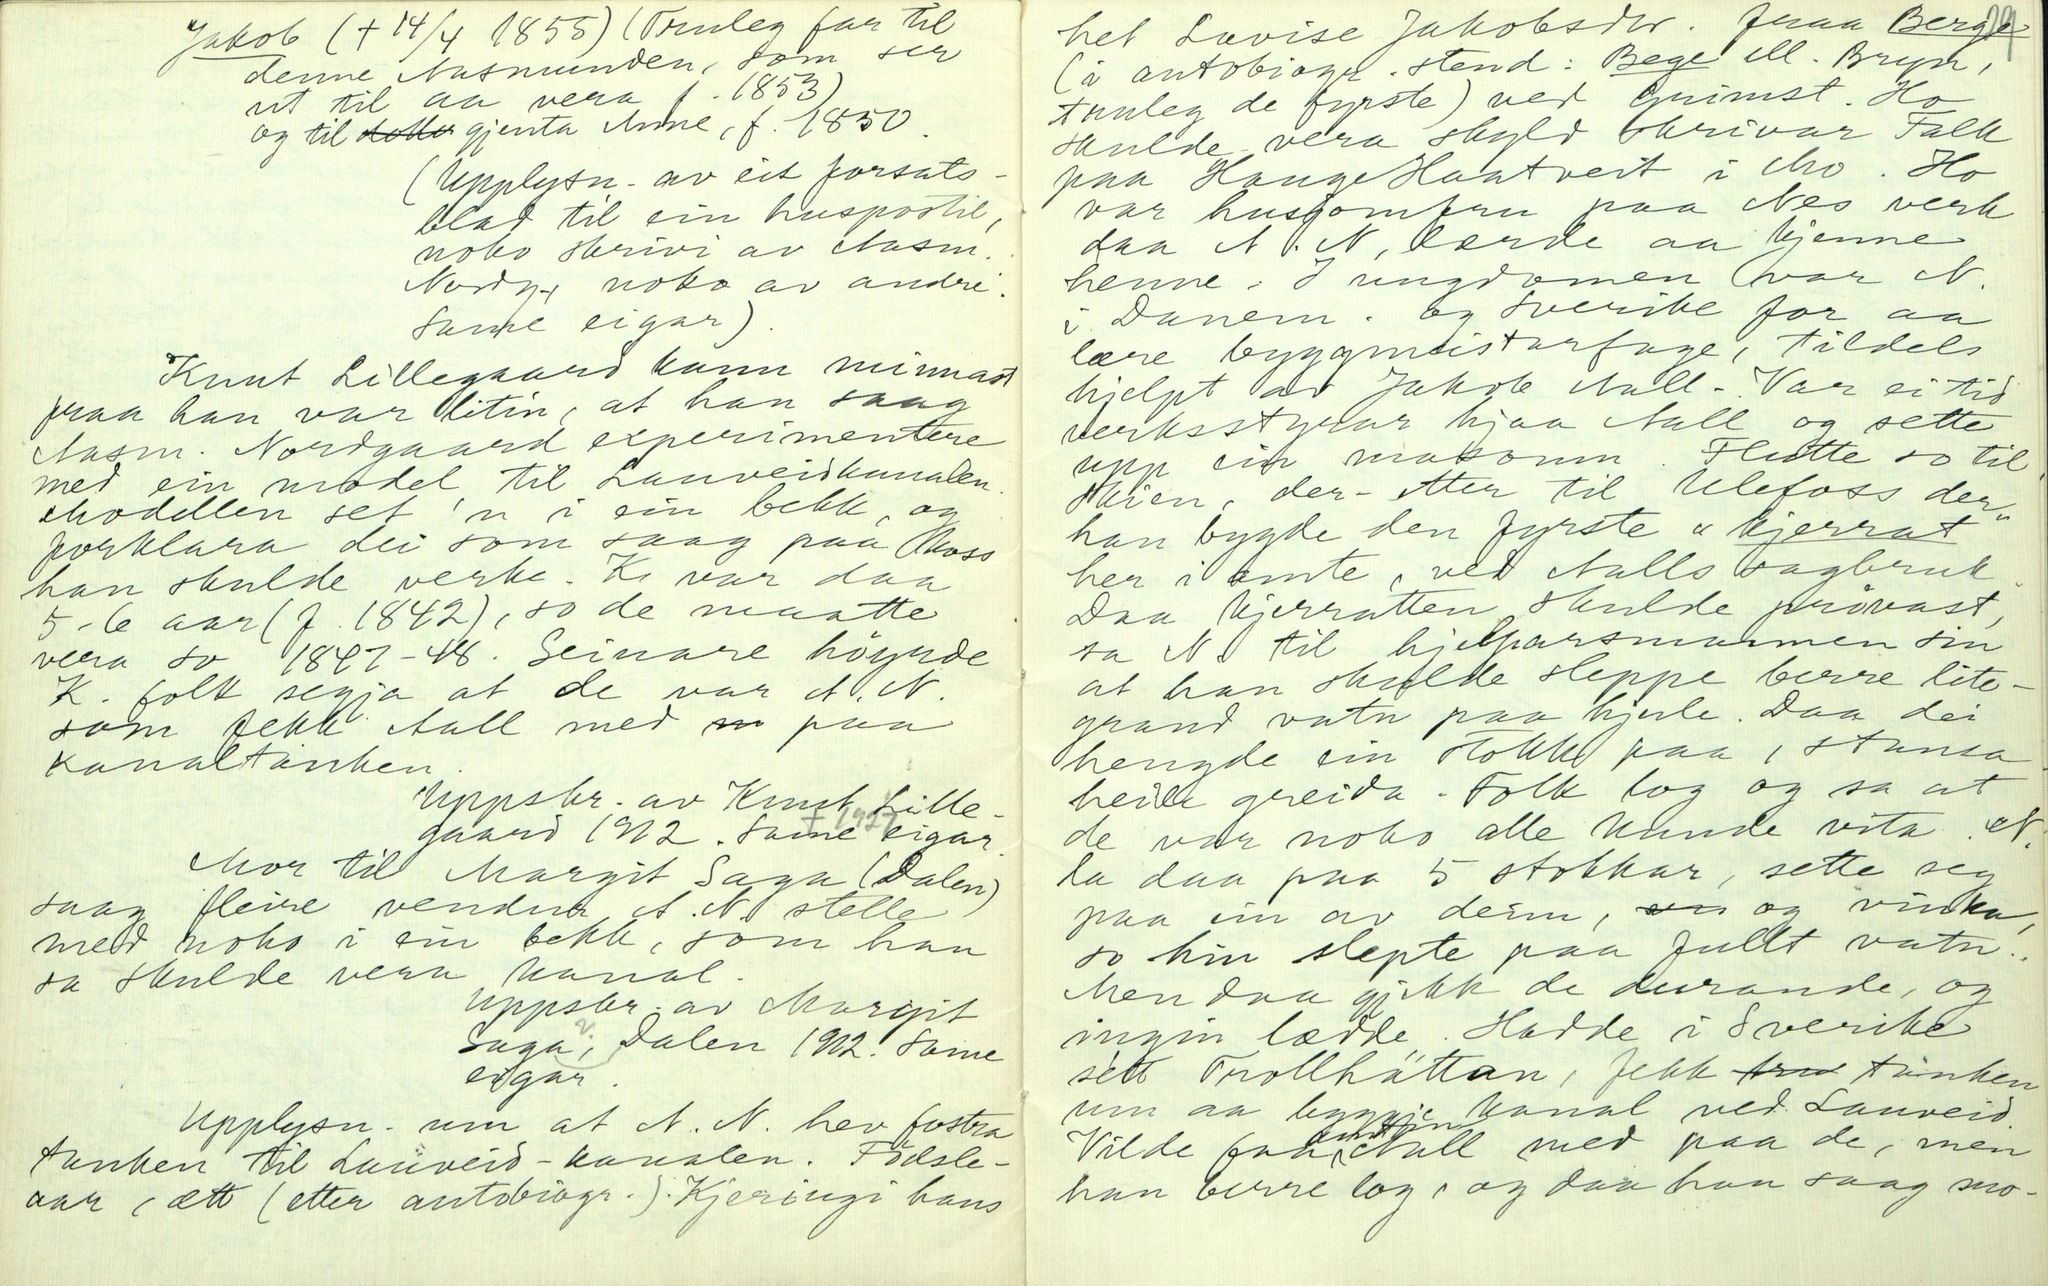 Jakob (+ 14/4 1855) (Truleg far til
denne Aasmunden, som ser
ut til aa vera f. 1853)
og til gjenta Anne, f. 1850.
(Upplysn. av eit forsats-
blad til ein huspostil,
noko skrivi av Aasm.
Nordg., noko av andre.
Same eigar).
Knut Lillegaard kann minnast
fraa han var liten, at han saag
Aasm. Nordgaard experimentere
med ein model til Lauveidkanalen.
Modellen set 'n i ein bekk, og
forklara dei som saag paa koss
han skulde verke. K. var daa
5-6 aar (f. 1842), so de maatte
vera so 1847-48. Seinare höyrde
K. folk segja at de var A. N.
som fekk Aall med paa
kanaltanken.
Uppskr. av Knut Lille-
gaard 1912. Same eigar.
+ 1927
Mor til Margit Saga (Dalen)
saag fleire vendur A. N. stelle
med noko i ein bekk, som han
sa skulde vera kanal.
Uppskr. av Margit
Saga, Dalen 1912. Same
eigar.
Upplysn. um at A. N. hev fostra
tanken til Lauveid-kanalen. Födsle-
aar, ætt (etter autobiogr.). Kjeringi hans
29
het Lovise Jakobsdtr. fraa Berge
(i autobiogr. stend: Bege ell. Bryn,
truleg de fyrste) ved Grimst. Ho
skulde vera skyld skrivar Falk
paa Hauge Haatveit i Mo. Ho
var husjomfru paa Nes verk
daa A. N, lærde aa kjenne
henne. I ungdomen var N.
i Danem. og Sverike for aa
lære byggmeistarfage, tildels
hjelpt av Jakob Aall. Var ei tid
verksstyrar hjaa Aall og sette
upp ein masomn. Flutte so til
Skien, der-etter til Ulefoss der
han bygde den fyrste "kjerrat"
her i amte, ved Aalls sagbruk.
Daa kjerratten skulde prövast,
sa N. til hjelparsmannen sin
at han skulde sleppe berre lite-
grand vatn paa hjule. Daa dei
hengde ein stokk paa, stansa
heile greida. Folk log og sa at
de var noko alle kunde vita. N.
la daa paa 5 stokkar, sette seg
paa ein av deim, og vinka,
so hin slepte paa fullt vatn.
Men daa gjekk de durande, og
ingin lædde. Hadde i Sverike
sètt Trollhättan, fekk tanken
um aa byggje kanal ved Lauveid.
Vilde faa Aall med paa de, men
han berre log, og daa han saag mo-